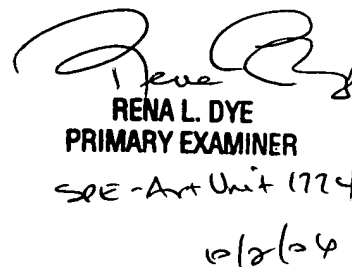 Rena
RENA L. DYE
PRIMARY EXAMINER
SPE - Art Unit 1774
10/2/04